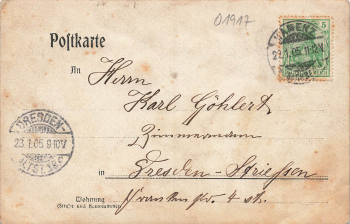 01917
Postkarte
5
KAMENZ
22.1.05. 11-12V
An
Herrn
Karl Göhlert
DRESDEN-
23.1.05. 9-10V
ALTST.
in
Dresden-Striessen
Wohnung
(Straße und Hausnummer)
4